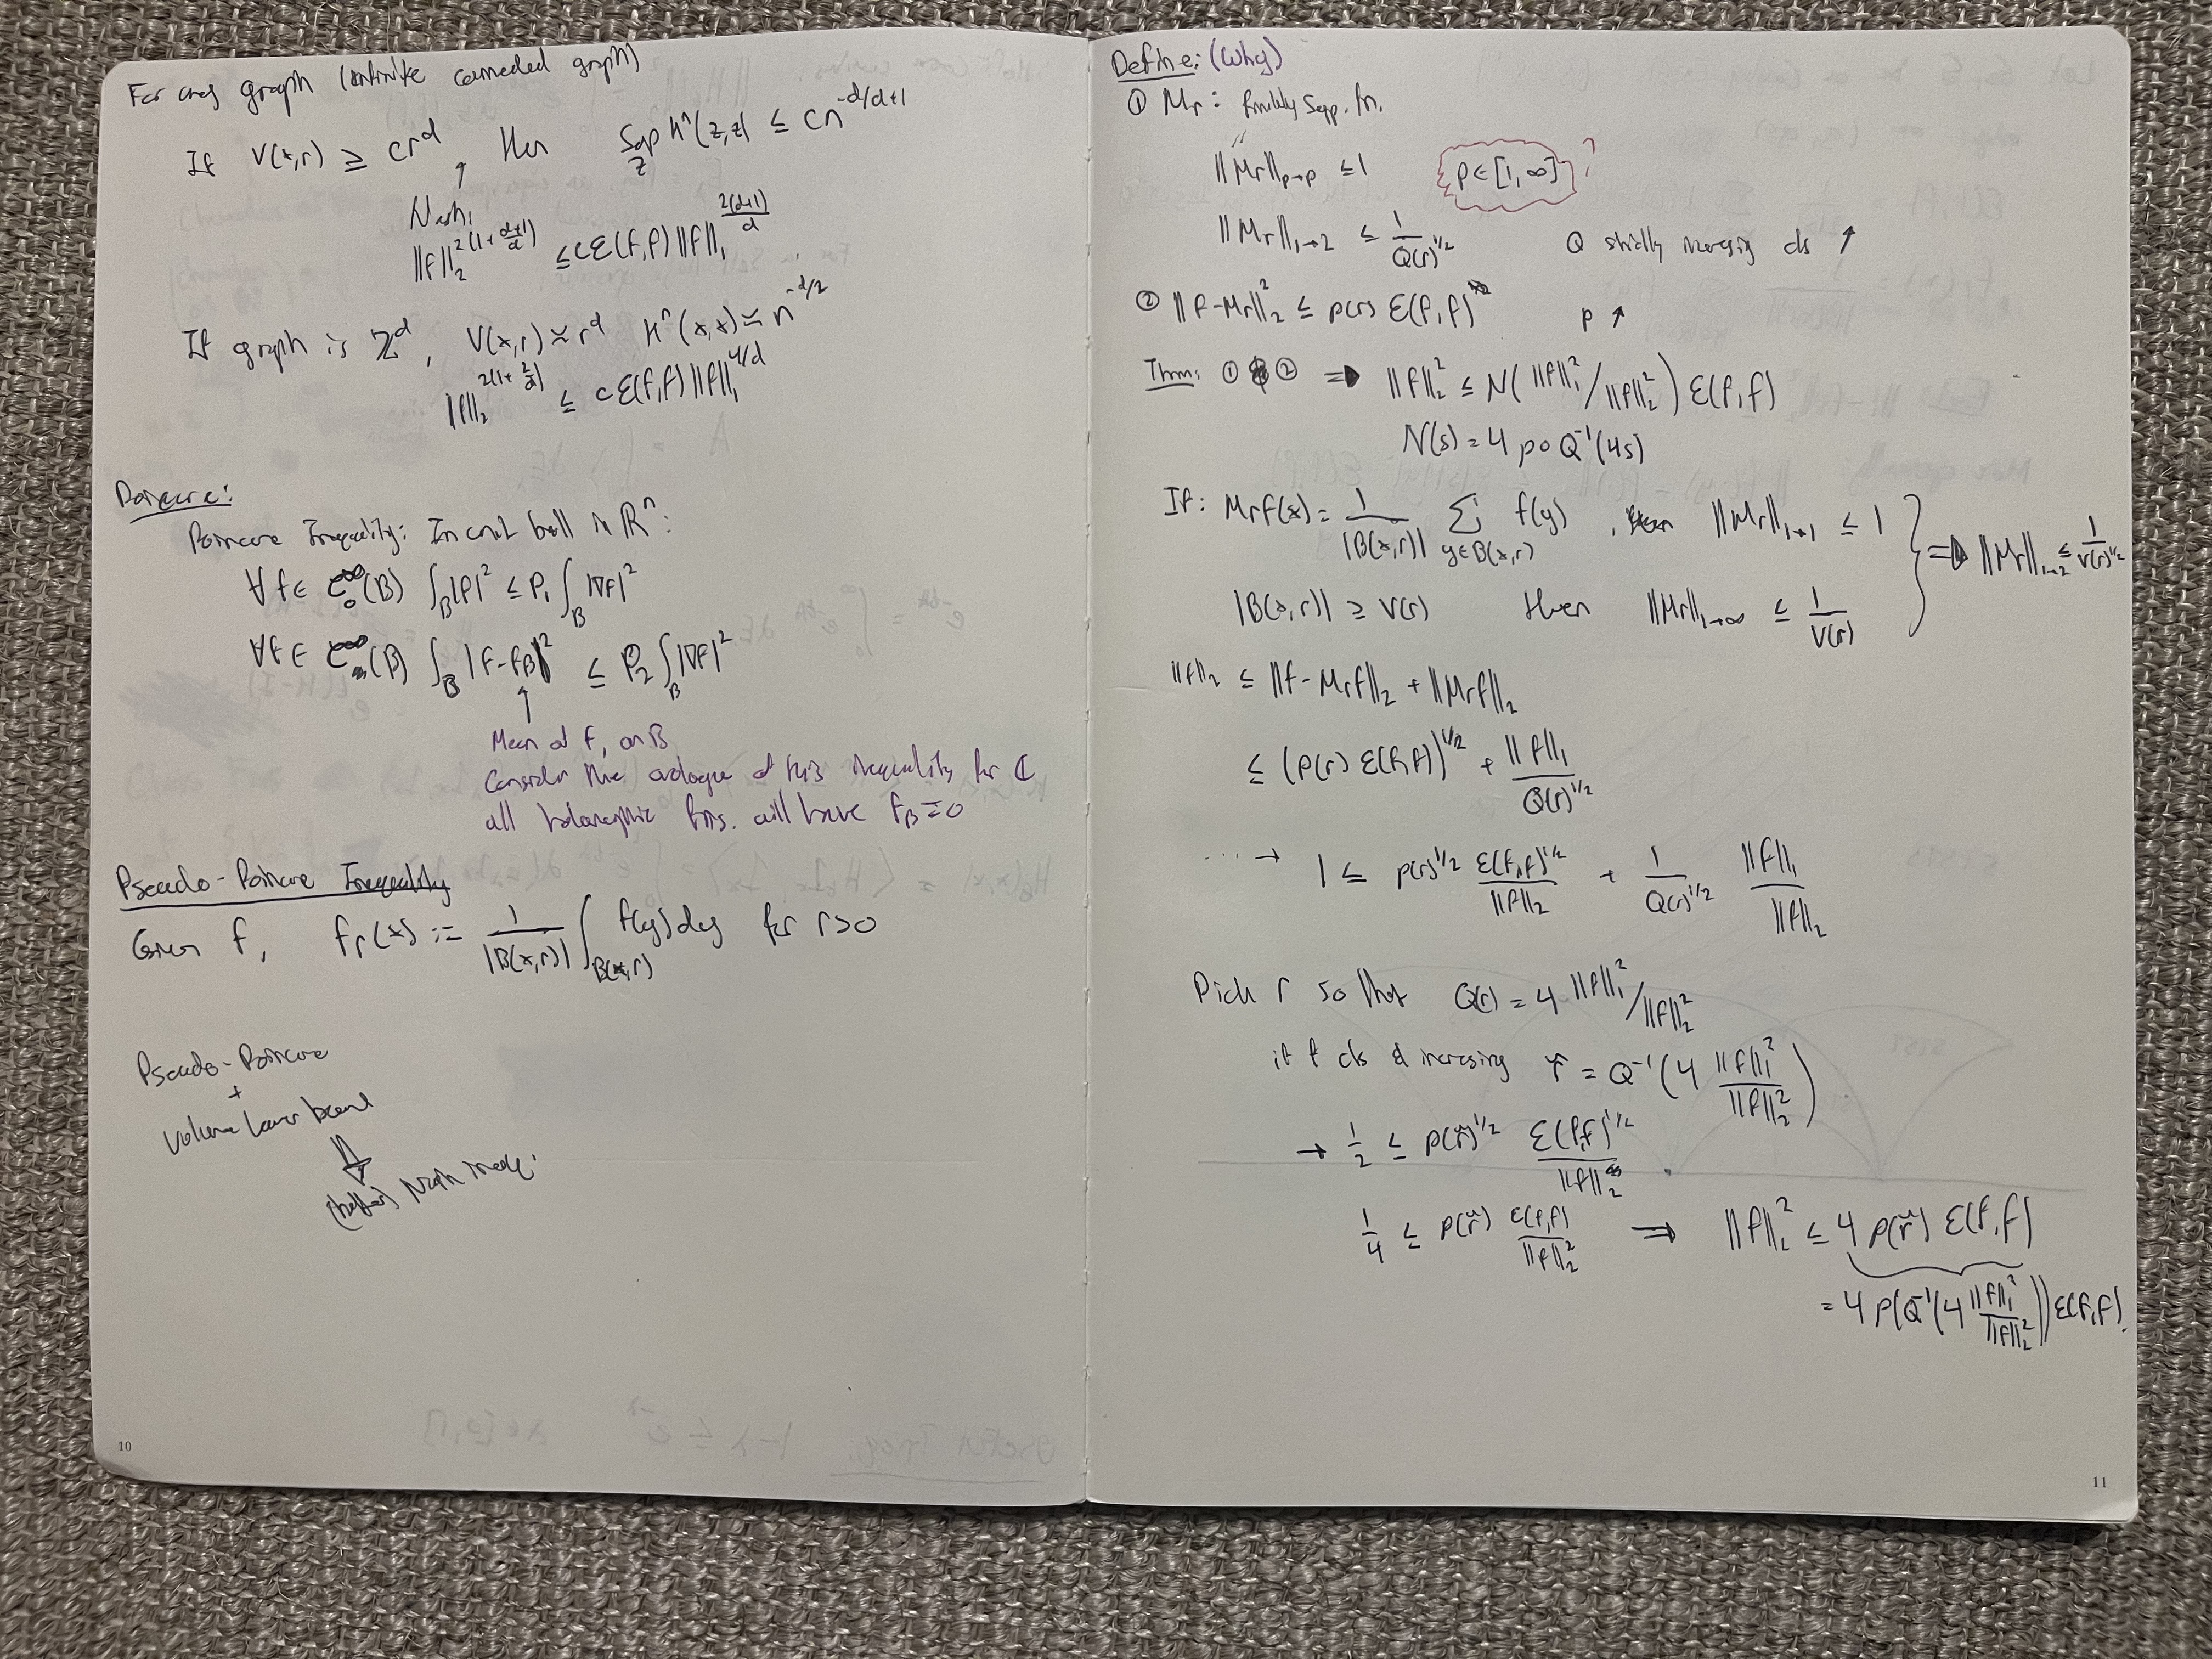 For any graph (infinite connected graph)
If V(x,r) ≥ cr^d, then sup_z h^n(z,z) ≤ cn^{-d/d+1}
Nash: ‖f‖_2^{2(1+\frac{d+1}{d})} ≤ cℰ(f,f)‖f‖_1^{\frac{2(d+1)}{d}}
If graph is ℤ^d, V(x,r) ≈ r^d h^n(x,x) ≈ n^{-d/2}
‖f‖_2^{2(1+\frac{2}{d})} ≤ cℰ(f,f)‖f‖_1^{4/d}
Poincaré:
Poincare Inequality: In unit ball in ℝ^n:
∀f∈ C_0^∞(B) ∫_B |f|^2 ≤ P_1 ∫_B |∇f|^2
∀f∈ C^∞(B) ∫_B |f-f_B|^2 ≤ P_2 ∫_B |∇f|^2
Mean of f, on B
Consider the analogue of this inequality for ℂ
all holomorphic fns. will have f_B=0
Pseudo-Poincare Inequality
Given f, f_r(x) := \frac{1}{|B(x,r)|} ∫_{B(x,r)} f(y)dy for r>0
Pseudo-Poincare
+
Volume lower bound
⇓
Nash ineq.
10
Define: (Why)
① M_r: finitely supp. fn.
‖M_r‖_{p→p} ≤ 1 p∈[1,∞]?
‖M_r‖_{1→2} ≤ \frac{1}{Q(r)^{1/2}} Q strictly incrasing cts ↗
② ‖f-M_rf‖_2^2 ≤ p(r) ℰ(f,f) p ↗
Thm: ① & ② ⇒ ‖f‖_2^2 ≤ N(‖f‖_1^2/‖f‖_2^2) ℰ(f,f)
N(s) = 4 p∘Q^{-1}(4s)
If: M_rf(x) = \frac{1}{|B(x,r)|} ∑_{y∈B(x,r)} f(y), then ‖M_r‖_{1→1} ≤ 1
|B(x,r)| ≥ V(r) then ‖M_r‖_{1→∞} ≤ \frac{1}{V(r)} } ⇒ ‖M_r‖_{1→2} ≤ \frac{1}{V(r)^{1/2}}
‖f‖_2 ≤ ‖f-M_rf‖_2 + ‖M_rf‖_2
≤ (p(r) ℰ(f,f))^{1/2} + \frac{‖f‖_1}{Q(r)^{1/2}}
... → 1 ≤ p(r)^{1/2} \frac{ℰ(f,f)^{1/2}}{‖f‖_2} + \frac{1}{Q(r)^{1/2}} \frac{‖f‖_1}{‖f‖_2}
Pick r so that Q(r) = 4 ‖f‖_1^2/‖f‖_2^2
if cts & incrasing r̃ = Q^{-1}(4 \frac{‖f‖_1^2}{‖f‖_2^2})
→ \frac{1}{2} ≤ p(r̃)^{1/2} \frac{ℰ(f,f)^{1/2}}{‖f‖_2}
\frac{1}{4} ≤ p(r̃) \frac{ℰ(f,f)}{‖f‖_2^2} ⇒ ‖f‖_2^2 ≤ 4 p(r̃) ℰ(f,f)
= 4 p(Q^{-1}(4 \frac{‖f‖_1^2}{‖f‖_2^2})) ℰ(f,f).
11